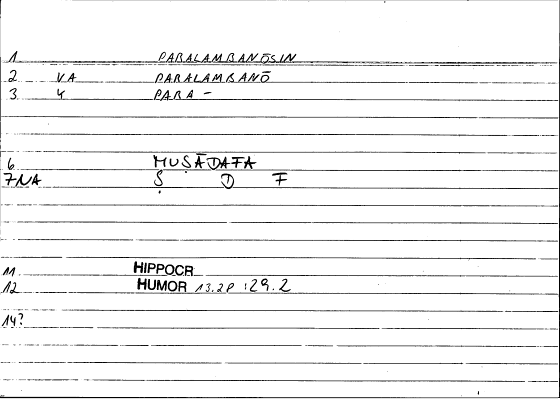 1 PARALAMBANŌSIN
2 VA PARALAMBANŌ
3 4 PARA -
6 MUṢĀDAFA
7 NA Ṣ D F
11 HIPPOCR
12 HUMOR 13.2P :29.2
14?